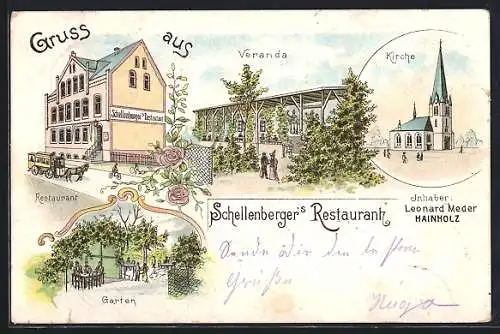 Gruss aus
Veranda
Kirche
Schellenberger's Restaurant
Restaurant
Schellenberger's Restaurant
Inhaber:
Leonard Meder
HAINHOLZ
Garten
Sende dir den
Grüße
Hugo